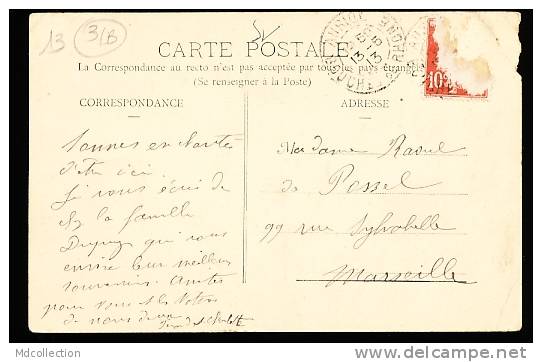 13
3/B
CARTE POSTALE
La Correspondance au recto n'est pas acceptée par tous les pays étrangers
(Se renseigner à la Poste)
CORRESPONDANCE
ADRESSE
10
Madame Raoul
de Possel
99 rue Sylvabelle
Marseille
Sommes enchantés
d'être ici.
Je vous écris de
chez la famille
qui vous
envoie leur meilleur
souvenirs. Amitiés
pour vous et les vôtres
de nous deux
MDCollection
http://mdcollection.delcampe.net